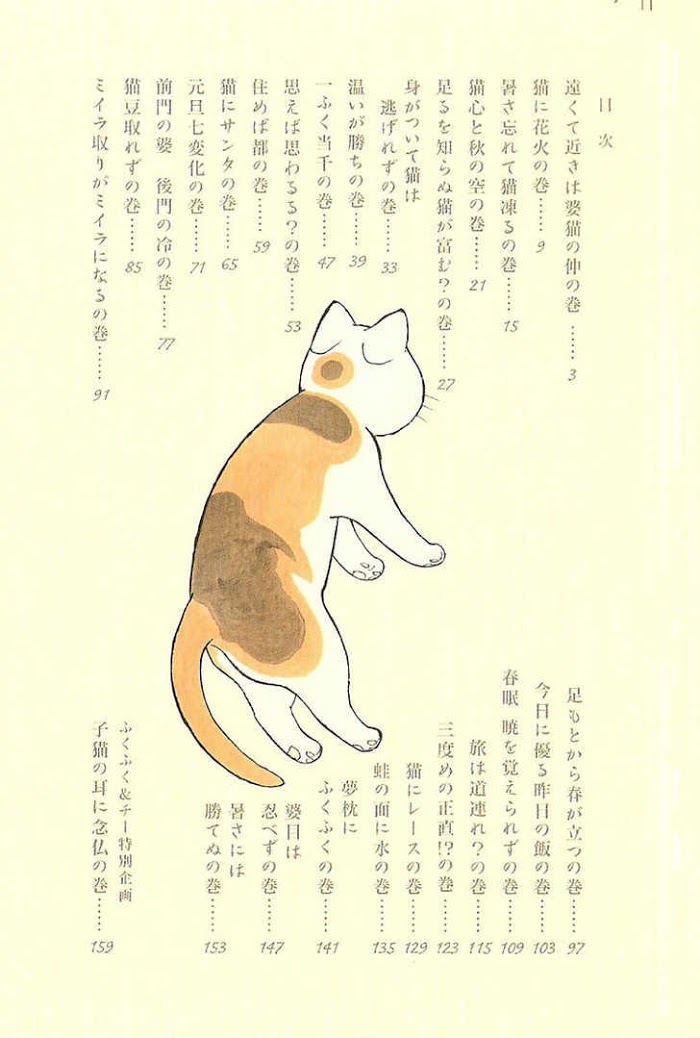 目次
遠くて近きは婆猫の仲の巻……3
猫に花火の巻……9
暑さ忘れて猫凍るの巻……15
猫心と秋の空の巻……21
足るを知らぬ猫が富む？の巻……27
身がついて猫は
逃げれずの巻……33
温いが勝ちの巻……39
一ふく当千の巻……47
思えば思わるる？の巻……53
住めば都の巻……59
猫にサンタの巻……65
元旦七変化の巻……71
前門の婆　後門の冷の巻……77
猫豆取れずの巻……85
ミイラ取りがミイラになるの巻……91
足もとから春が立つの巻……97
今日に優る昨日の飯の巻……103
春眠　暁を覚えられずの巻……109
旅は道連れ？の巻……115
三度めの正直!?の巻……123
猫にレースの巻……129
蛙の面に水の巻……135
夢枕に
ふくふくの巻……141
婆日は
忍べずの巻……147
暑さには
勝てぬの巻……153
ふくふく＆チー特別企画
子猫の耳に念仏の巻……159